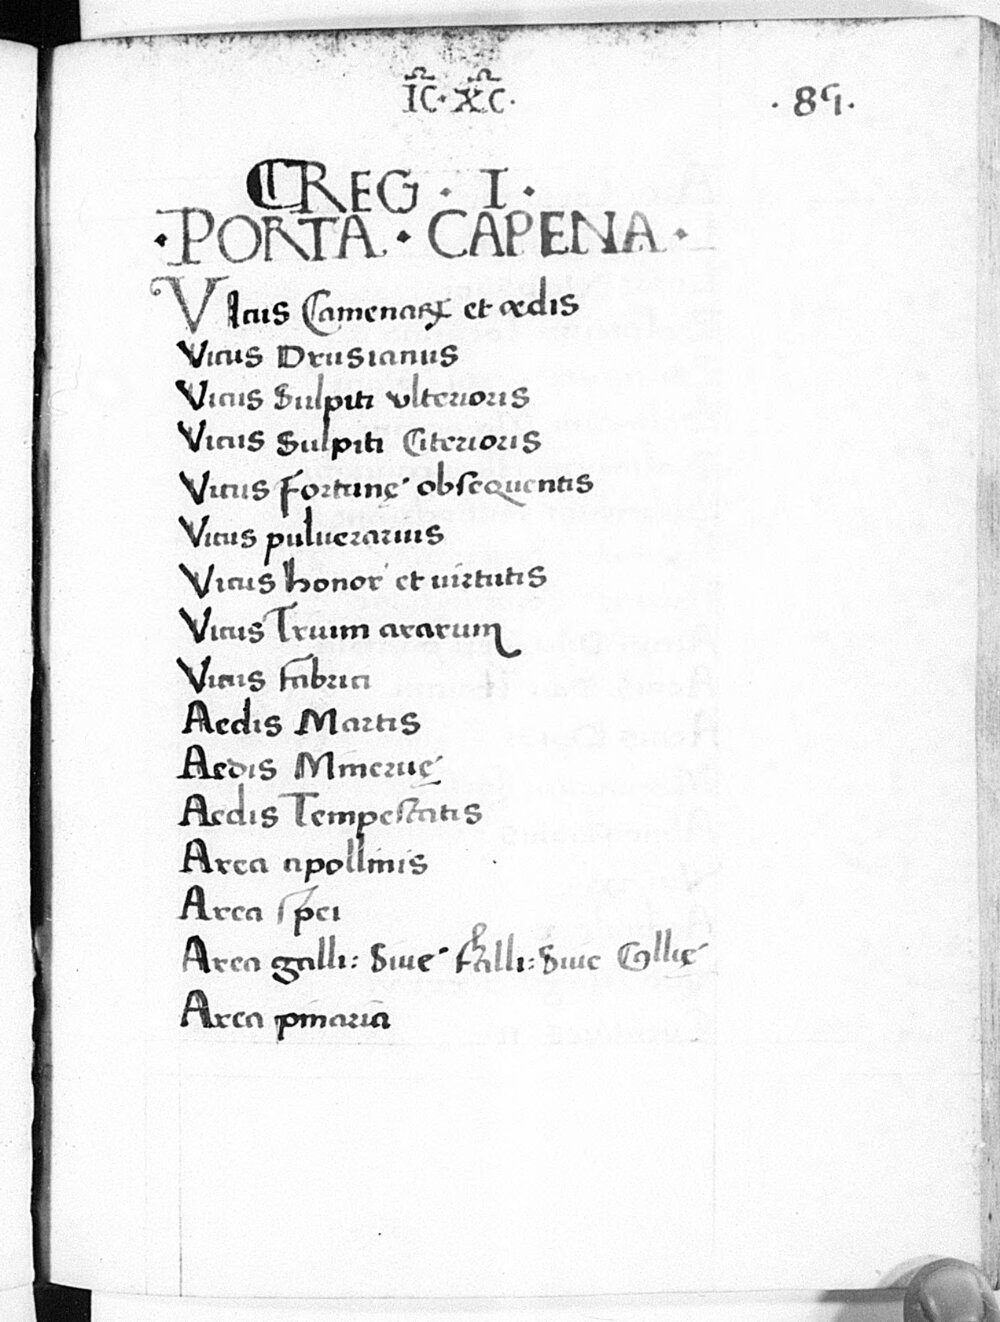 IC · XC ·
· 89 ·
REG · I ·
· PORTA · CAPENA ·
Vicus Camenarꝝ et ædis
Vicus Drusianus
Vicus Sulpiti vlterioris
Vicus Sulpiti Citerioris
Vicus Fortunę obsequentis
Vicus puluerarius
Vicus honor et uirtutis
Vicus Trium ararum
Vicus fabrici
Aedis Martis
Aedis Mineruę
Aedis Tempestatis
Area apollinis
Area spei
Area galli: Siue thalli: Siue Gallię
Area pinaria